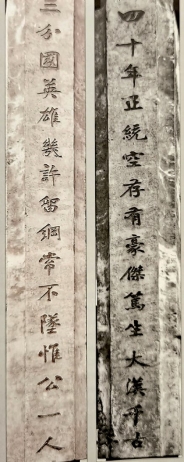 四十年正統空存有豪傑篤生大漢千古
三分國英雄幾許留綱常不墜惟公一人